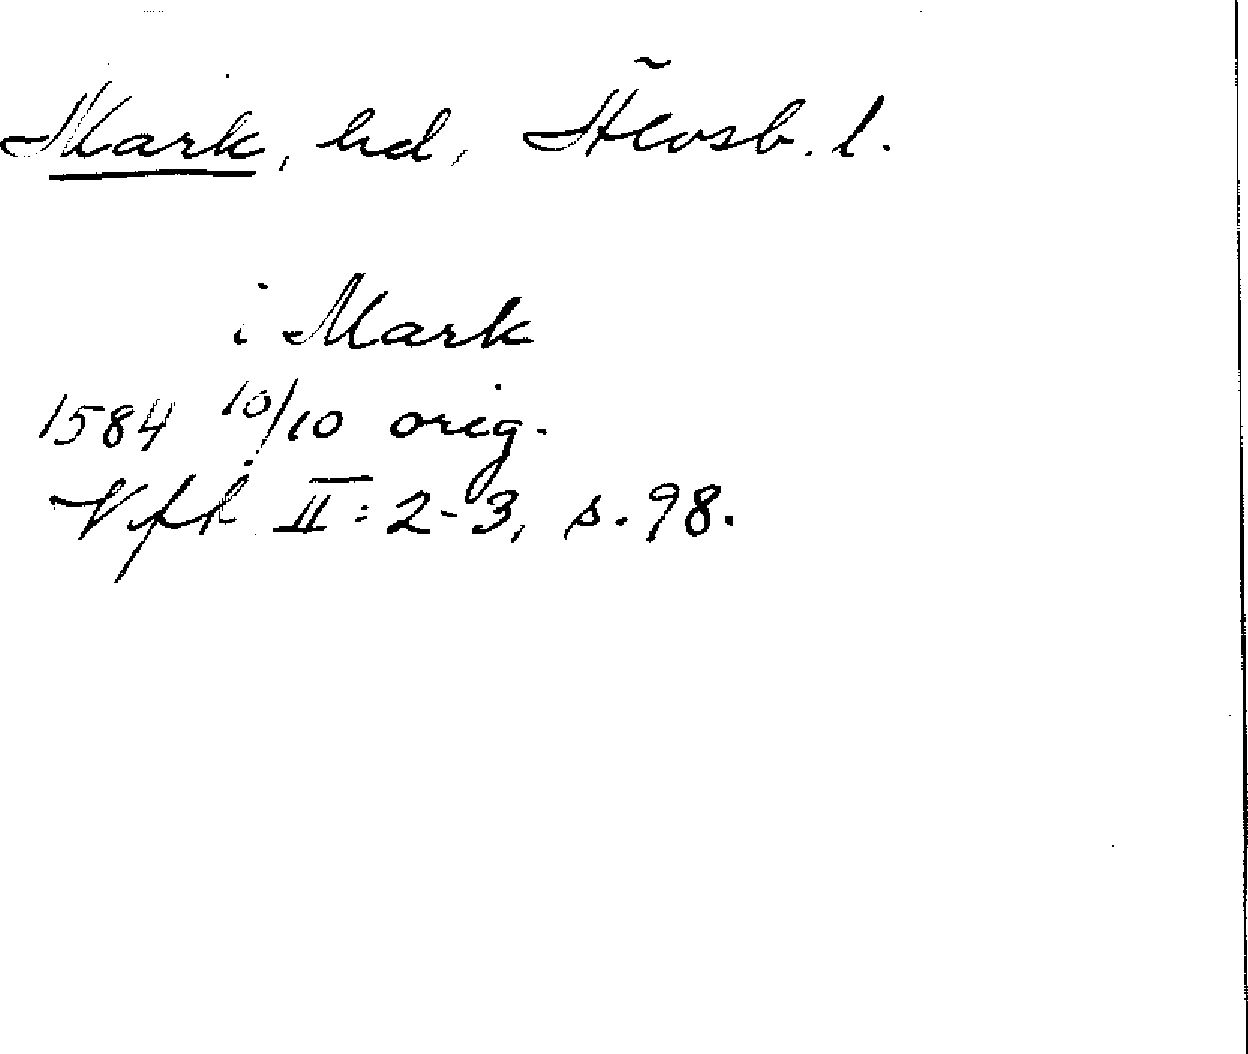 Mark, hd, Älvsb. l.
i Mark
1584 10/10 orig.
Vfh II: 2-3, s. 98.